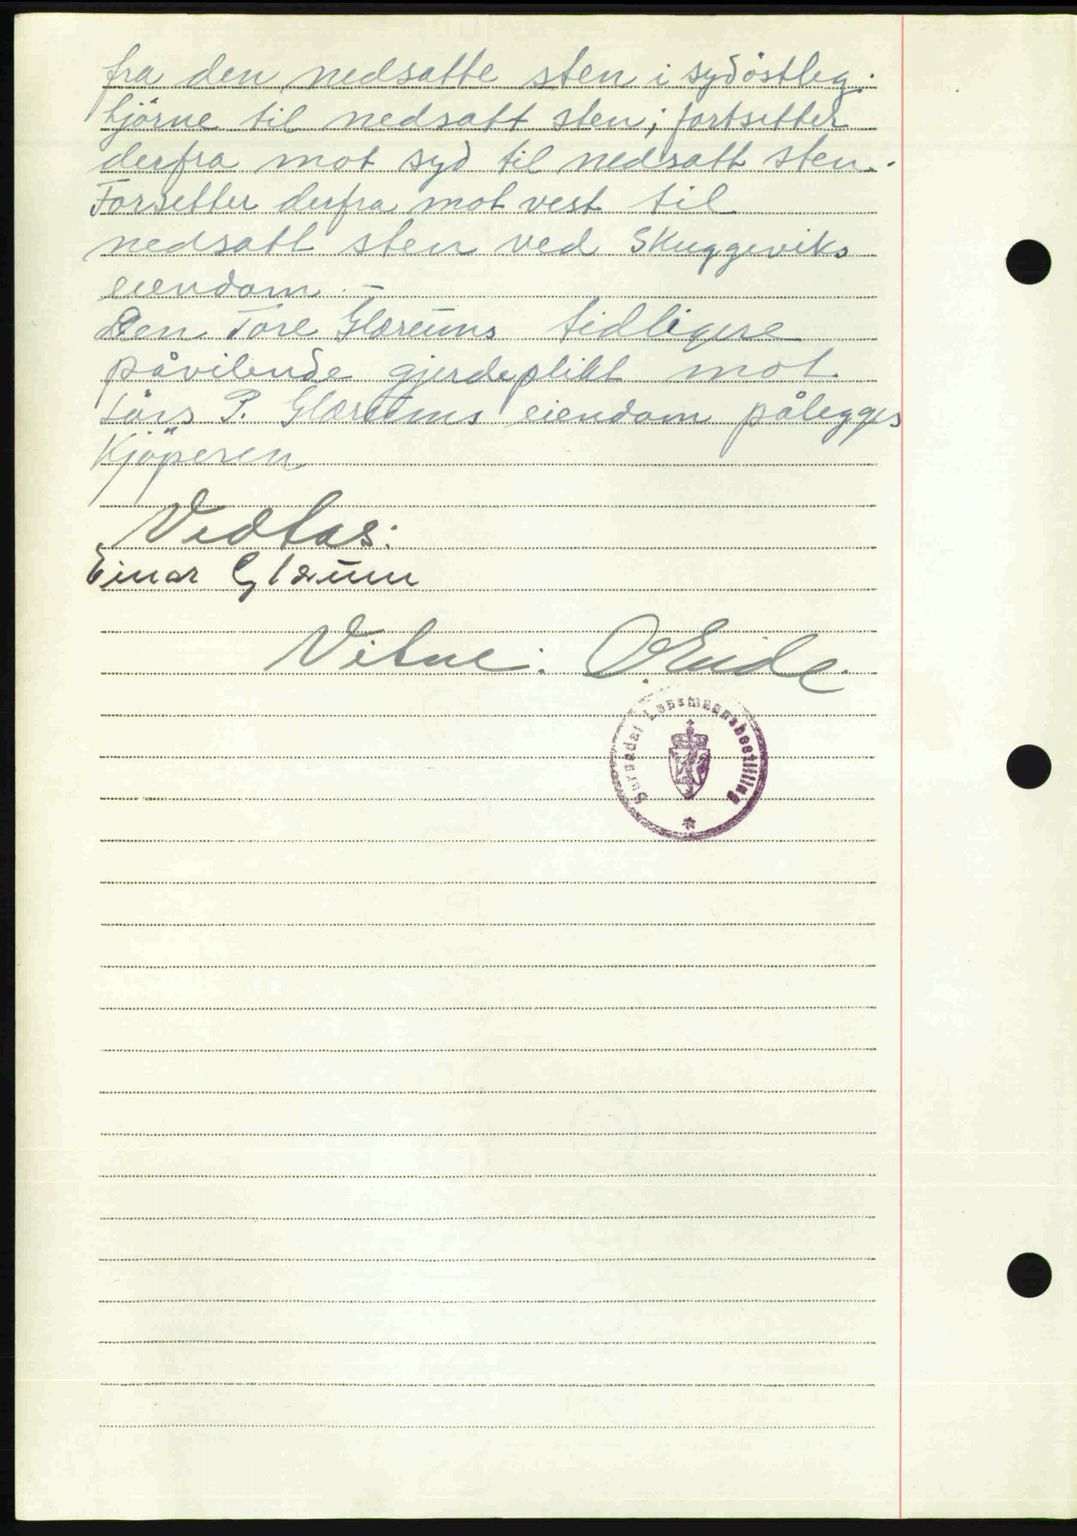 fra den nedsatte sten i sydöstleg.
hjörne til nedsatt sten; fortsetter
derfra mot syd til nedsatt sten.
Forsetter derfra mot vest til
nedsatt sten ved Skuggeviks
eiendom. —
Den Tore Glærums tidligere
påvilende gjerdeplikt mot
Lars P. Glærums eiendom pålegges
Kjöperen
Vedtas:
Einar Glærum
Vitne: O. Eide.
Surndal Lensmannsbestilling